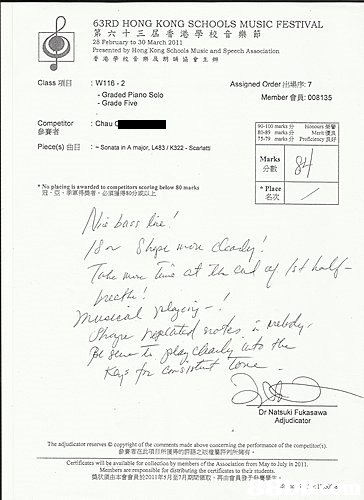 63RD HONG KONG SCHOOLS MUSIC FESTIVAL
第六十三屆香港學校音樂節
28 February to 30 March 2011
Presented by Hong Kong Schools Music and Speech Association
香港學校音樂及朗誦協會主辦
Class 項目 : W116 - 2
- Graded Piano Solo
- Grade Five
Assigned Order 出場序: 7
Member 會員: 008135
Competitor : Chau C
參賽者
Piece(s) 曲目 : ~ Sonata in A major, L483 / K322 - Scarlatti
90-100 marks 分 Honours 榮譽
80-89 marks 分 Merit 優良
75-79 marks 分 Proficiency 良好
Marks 84
分數
* Place /
名次
* No placing is awarded to competitors scoring below 80 marks
冠、亞、季軍得獎者，必須獲得80分或以上
Nice bass line!
18 Shape more clearly!
Take more time at the end of 1st half -
breathe!
musical playing - !
Shape repeated notes in melody.
Be sure to play clearly into the
keys for consistent tone.
Dr Natsuki Fukasawa
Adjudicator
The adjudicator reserves © copyright of the comments made above concerning the performance of the competitor(s).
參賽者在此項目所獲得的評語之版權屬評判所擁有。
Certificates will be available for collection by members of the Association from May to July in 2011.
Members are responsible for distributing the certificates to their students.
獎狀須由本會會員於2011年5月至7月期間領取，再由會員發予參賽學生。